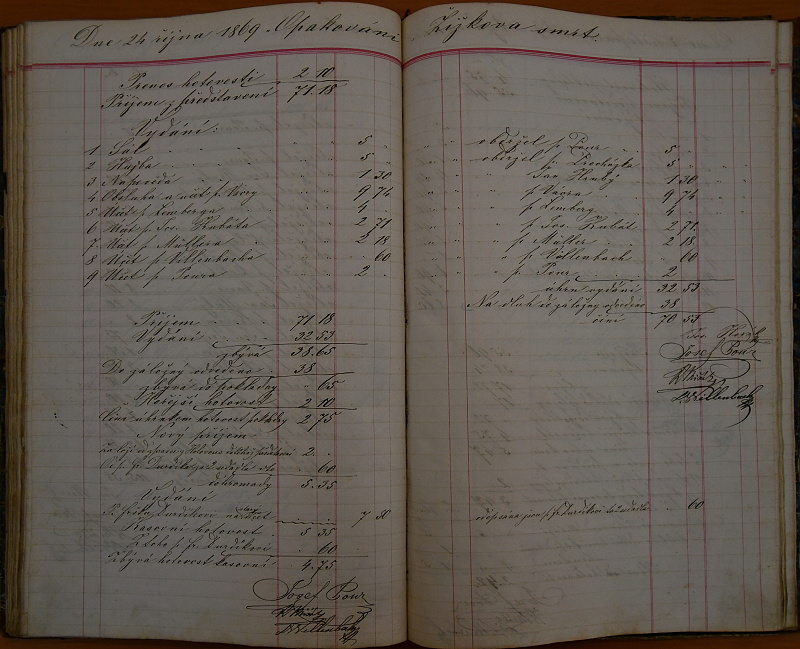 Dne 24 října 1869. Opakování Žižkova smrt.
Přenos hotovosti 2 10
Příjem z představení 71.18
Vydání:
1 Sál 5
2 Hudba 5
3 Nápověda 1 30
4 Obsluha a účt p. Vávry 9 74
5 Účet p. Lemberga 4
6 Účt p. Jos. Kubáta 2 71
7 Účt p. Müllera 2 18
8 Účet p. Villenbacha 60
9 Účet p. Poura 2
Příjem 71 18
Vydání 32 53
zbývá 38.65
Do záložny odvedeno 38
zbývá do pokladny 65
Hořejší hotovost 2 10
Činí úhrnkem hotovost pokladny 2 75
Nový příjem
2.
60
dohromady 5.35
Vydání
7 50
Kasovní hotovost 5 35
Z toho p. Fr. Durdíkovi 60
Zbývá hotovost kasovní 4.75
Josef Pour
obdržel p. Pour 5
obdržel p. Procházka 5
Jan Hrubý 1 30
p. Vávra 9 74
p. Lemberg 4
p. Jos. Kubát 2 71
p. Müller 2 18
p. Villenbach 60
p. Pour 2
úhrn vydání 32 53
Na dluh do záložny odvedeno 38
činí 70 53
Josef Pour
p. Fr. Durdíkovi 60